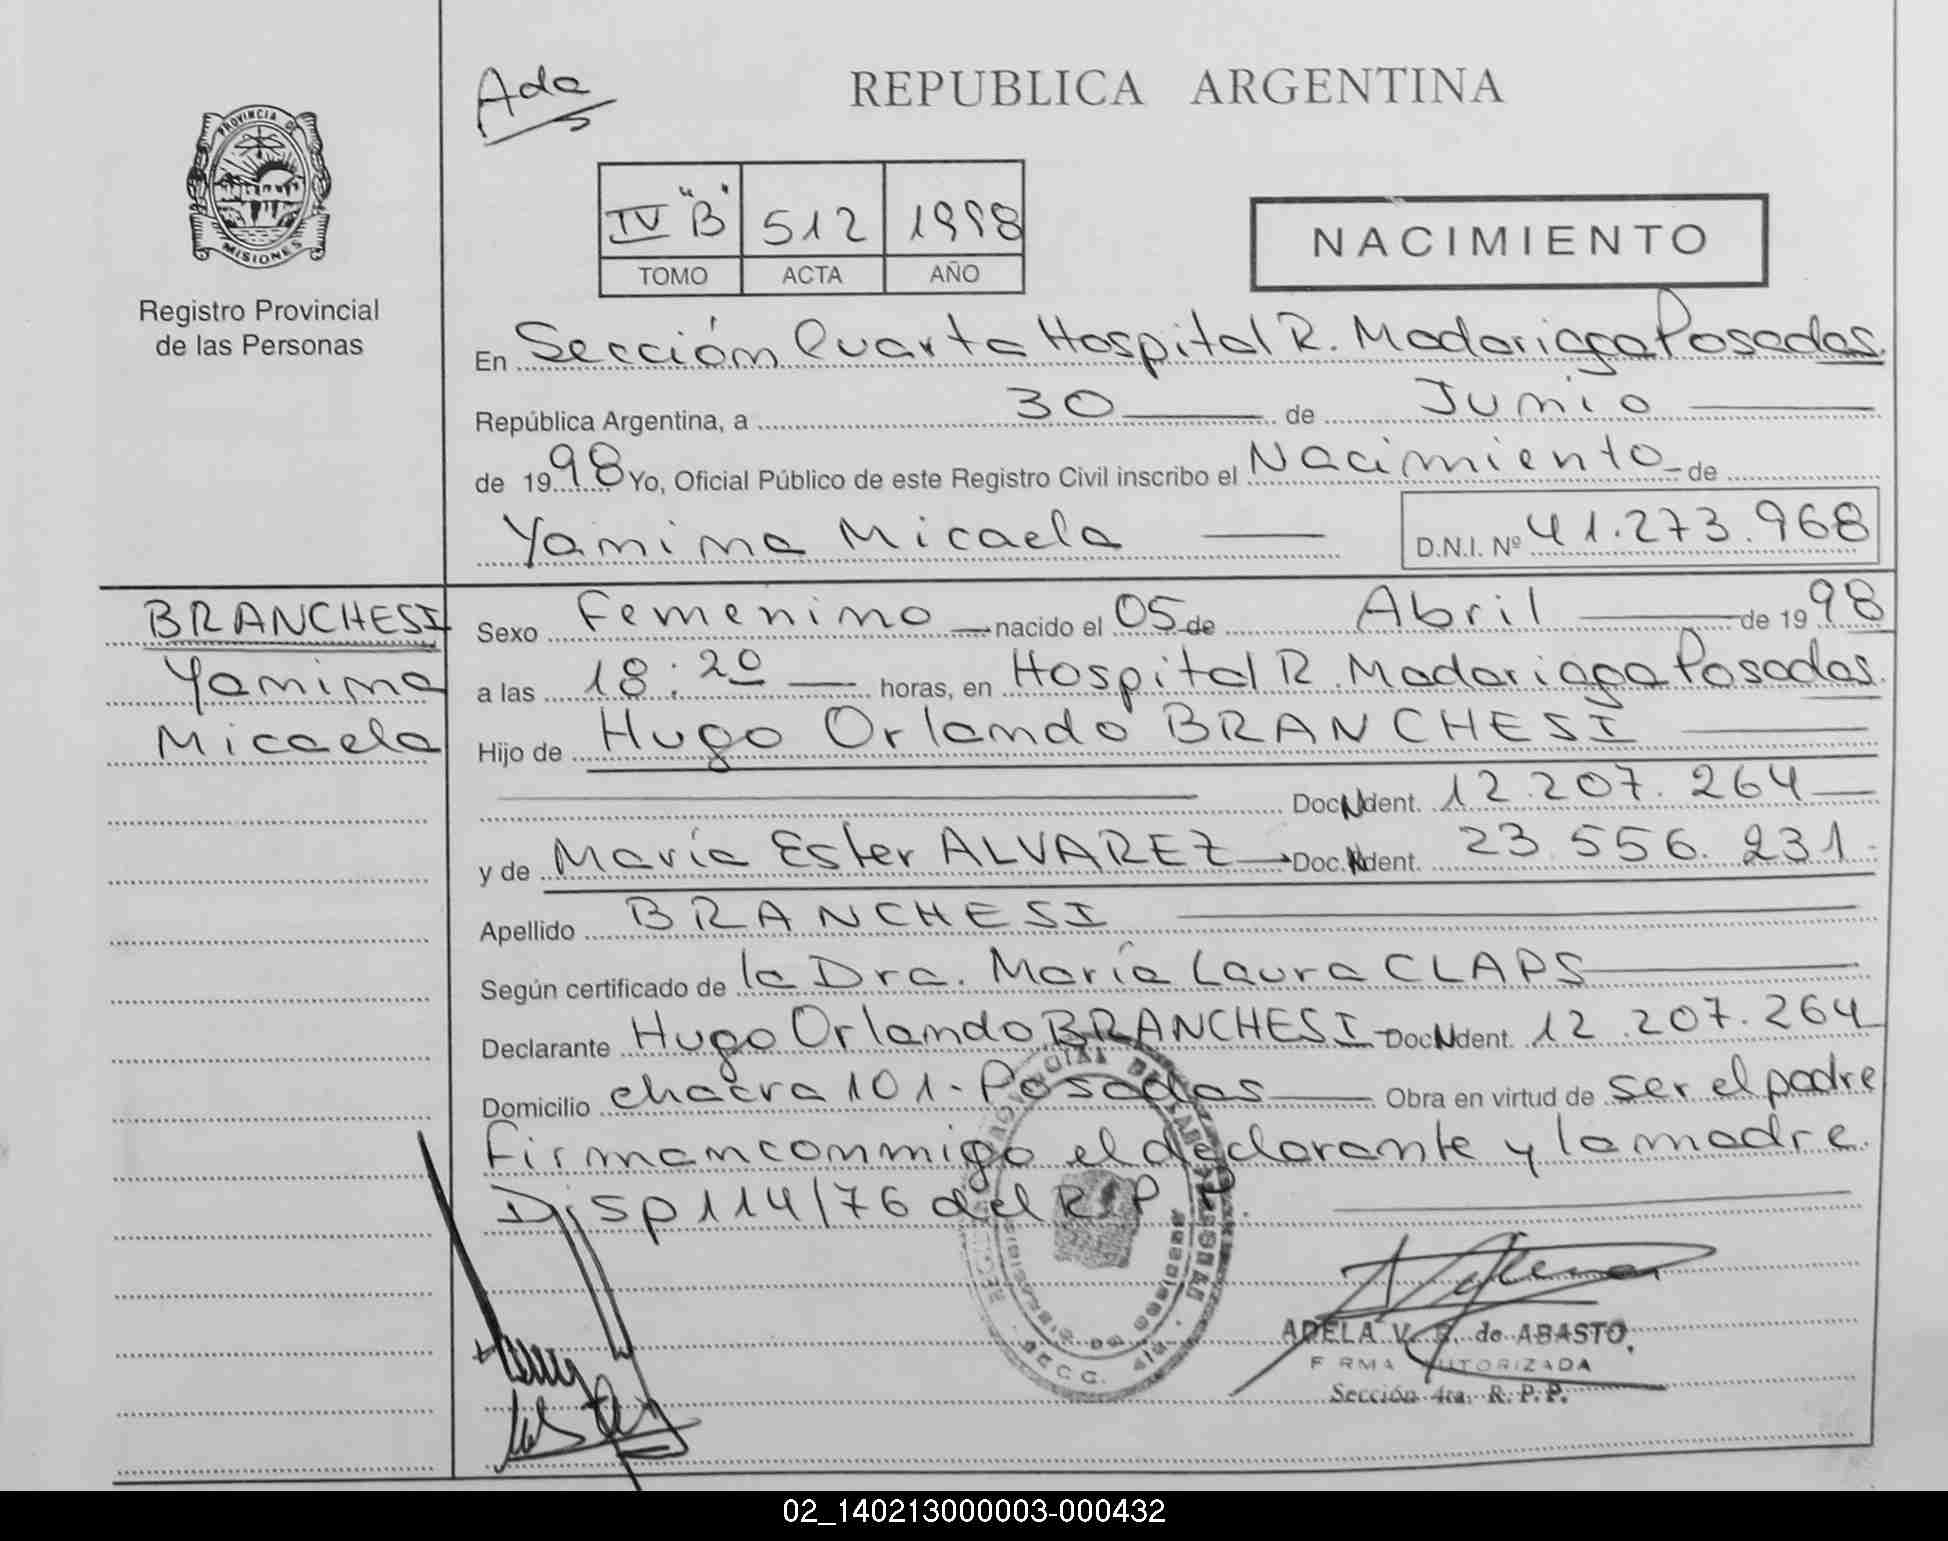 Ada
REPUBLICA ARGENTINA
PROVINCIA DE
MISIONES
Registro Provincial
de las Personas
IV "B" 512 1998
TOMO ACTA AÑO
NACIMIENTO
En Sección Cuarta Hospital R. Madariaga Posadas.
República Argentina, a 30 de Junio
de 1998 Yo, Oficial Público de este Registro Civil inscribo el Nacimiento de
Yanina Micaela D.N.I. Nº 41.273.968
BRANCHESI
Yanina
Micaela
Sexo Femenino nacido el 05 de Abril de 1998
a las 18:20 horas, en Hospital R. Madariaga Posadas.
Hijo de Hugo Orlando BRANCHESI
Doc N Ident. 12.207.264
y de María Ester ALVAREZ Doc. N Ident. 23.556.231.
Apellido BRANCHESI
Según certificado de la Dra. María Laura CLAPS
Declarante Hugo Orlando BRANCHESI Doc N Ident. 12.207.264
Domicilio chacra 101 - Posadas Obra en virtud de ser el padre
Firman conmigo el declarante y la madre.
Disp 114/76 del R.P.P.
ADELA V. de ABASTO
FIRMA AUTORIZADA
Sección 4ta. R. P. P.
02_140213000003-000432